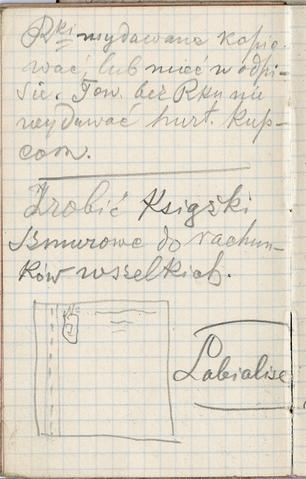 Rki wydawane kopio
wać, lub mieć w odpi-
sie. Tow. bez Rku nie
wydawać hurt. kup-
com.
Zrobić Książki
sznurowe do rachun-
ków wszelkich.
Labialise